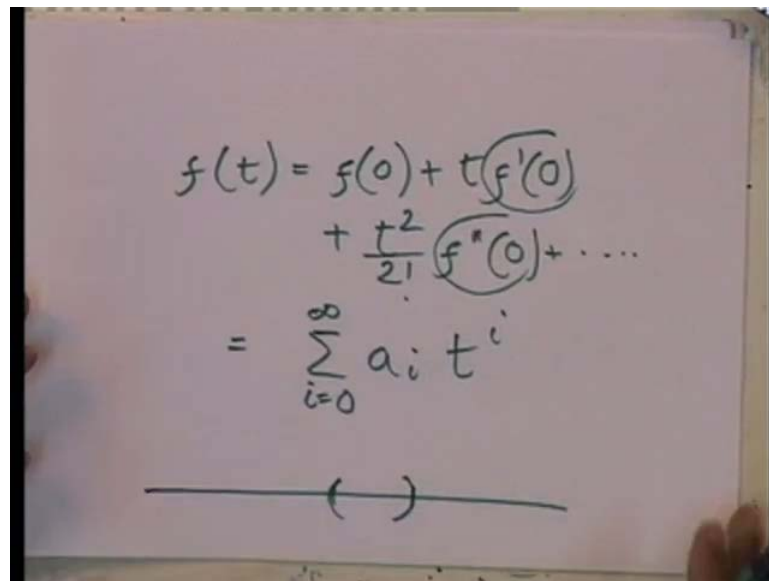 f(t) = f(0) + t f'(0)
+ t²/2! f"(0) + ....
= ∑_{i=0}^{∞} a_i t^i
( )